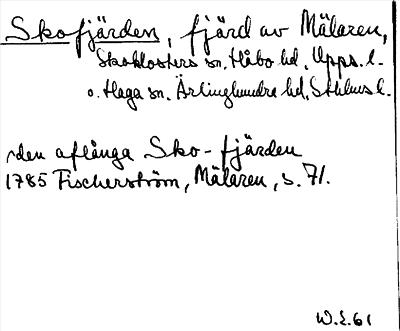 Skofjärden, fjärd av Mälaren,
Skoklosters sn, Håbo hd, Upps. l.
o. Haga sn, Ärlinghundra hd, Sthlms l.
den aflånga Sko-fjärden
1785 Fischerström, Mälaren, s. 71.
W.E. 61